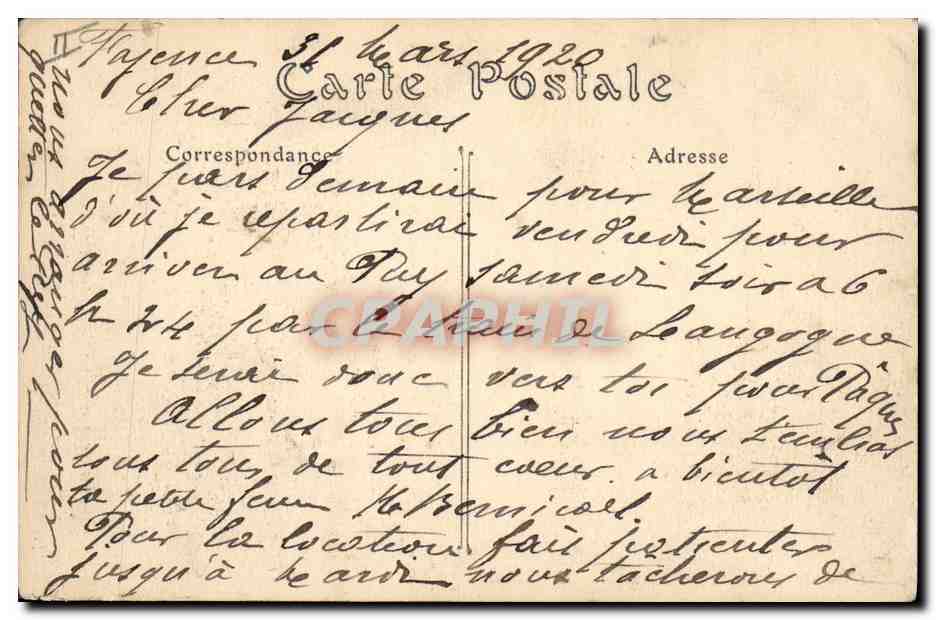 Fayence 31 Mars 1920
Carte Postale
Cher Jacques
Correspondance
Adresse
Je pars demain pour Marseille
d'où je repartirai vendredi pour
arriver au Puy samedi soir à 6
h 24 par le train de Langogne
CPAPHIL
Je serai donc vers toi pour Pâques
Allons tous bien nous t'embras
sons tous de tout coeur a bientôt
ta petite femme M
Pour la location fait patienter
jusqu'à Mardi nous tacherons de
nous arranger pour
quitter le